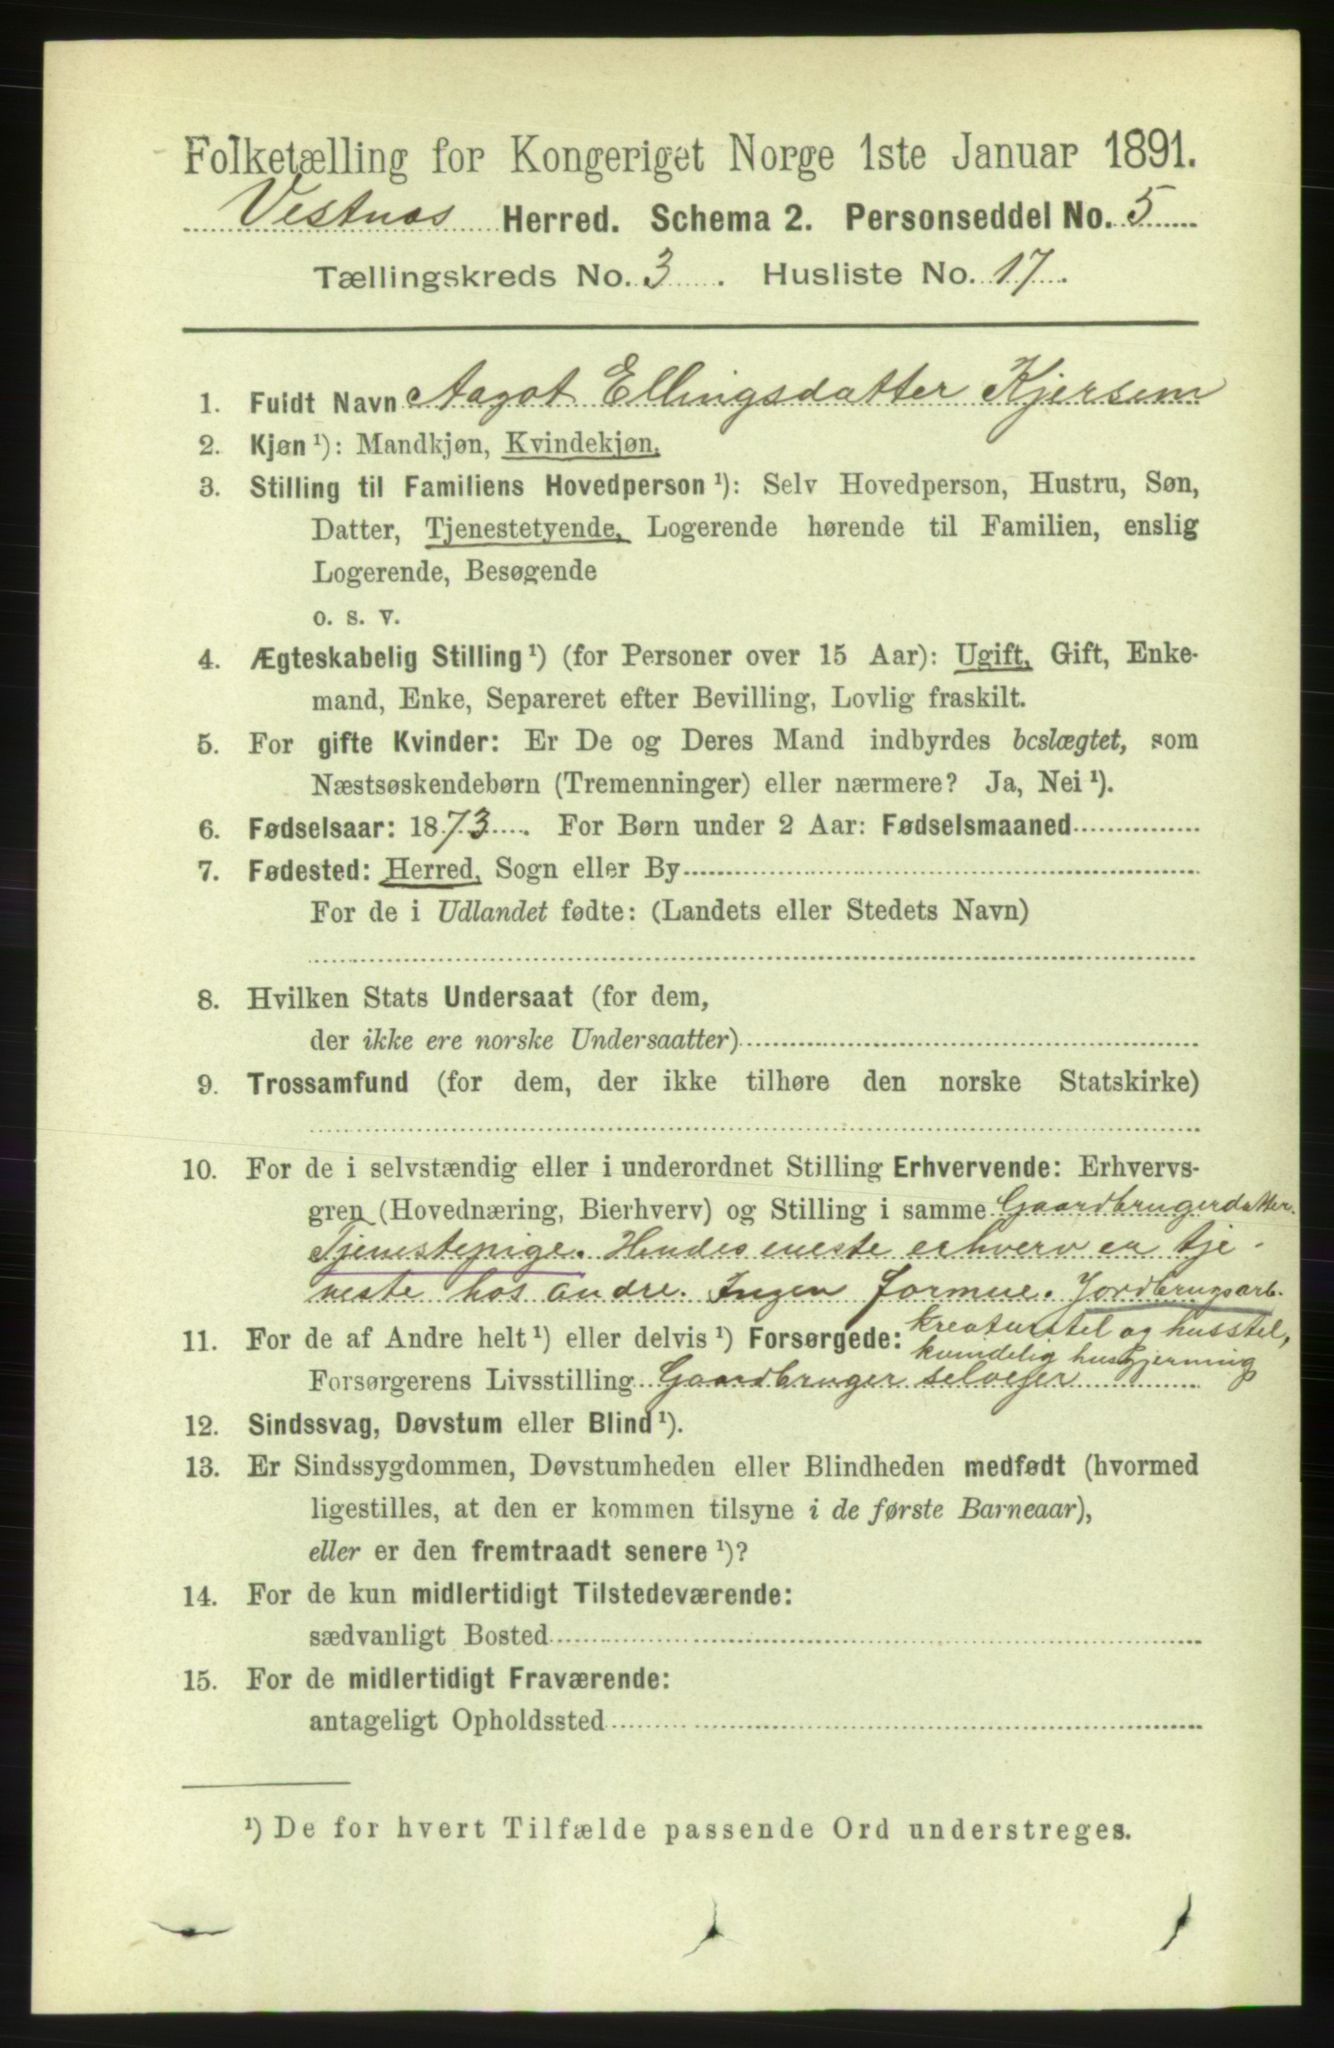 Folketælling for Kongeriget Norge 1ste Januar 1891.
Vestnæs Herred. Schema 2. Personseddel No. 5
Tællingskreds No. 3. Husliste No. 17.
1. Fuldt Navn Aagot Ellingsdatter Kjersem
2. Kjøn ¹): Mandkjøn, Kvindekjøn.
3. Stilling til Familiens Hovedperson ¹): Selv Hovedperson, Hustru, Søn,
Datter, Tjenestetyende, Logerende hørende til Familien, enslig
Logerende, Besøgende
o. s. v.
4. Ægteskabelig Stilling ¹) (for Personer over 15 Aar): Ugift, Gift, Enke-
mand, Enke, Separeret efter Bevilling, Lovlig fraskilt.
5. For gifte Kvinder: Er De og Deres Mand indbyrdes beslægtet, som
Næstsøskendebørn (Tremenninger) eller nærmere? Ja, Nei ¹).
6. Fødselsaar: 1873. For Børn under 2 Aar: Fødselsmaaned
7. Fødested: Herred, Sogn eller By
For de i Udlandet fødte: (Landets eller Stedets Navn)
8. Hvilken Stats Undersaat (for dem,
der ikke ere norske Undersaatter)
9. Trossamfund (for dem, der ikke tilhøre den norske Statskirke)
10. For de i selvstændig eller i underordnet Stilling Erhvervende: Erhvervs-
gren (Hovednæring, Bierhverv) og Stilling i samme Gaardbrugerdatter.
Tjenestepige. Hendes eneste erhverv er tje-
neste hos andre. Ingen formue. Jordbrugsarb.
kreaturstel og husstel,
11. For de af Andre helt ¹) eller delvis ¹) Forsørgede: kvindelig husgjerning
Forsørgerens Livsstilling Gaardbruger selveier
12. Sindssvag, Døvstum eller Blind ¹).
13. Er Sindssygdommen, Døvstumheden eller Blindheden medfødt (hvormed
ligestilles, at den er kommen tilsyne i de første Barneaar),
eller er den fremtraadt senere ¹)?
14. For de kun midlertidigt Tilstedeværende:
sædvanligt Bosted
15. For de midlertidigt Fraværende:
antageligt Opholdssted
¹) De for hvert Tilfælde passende Ord understreges.